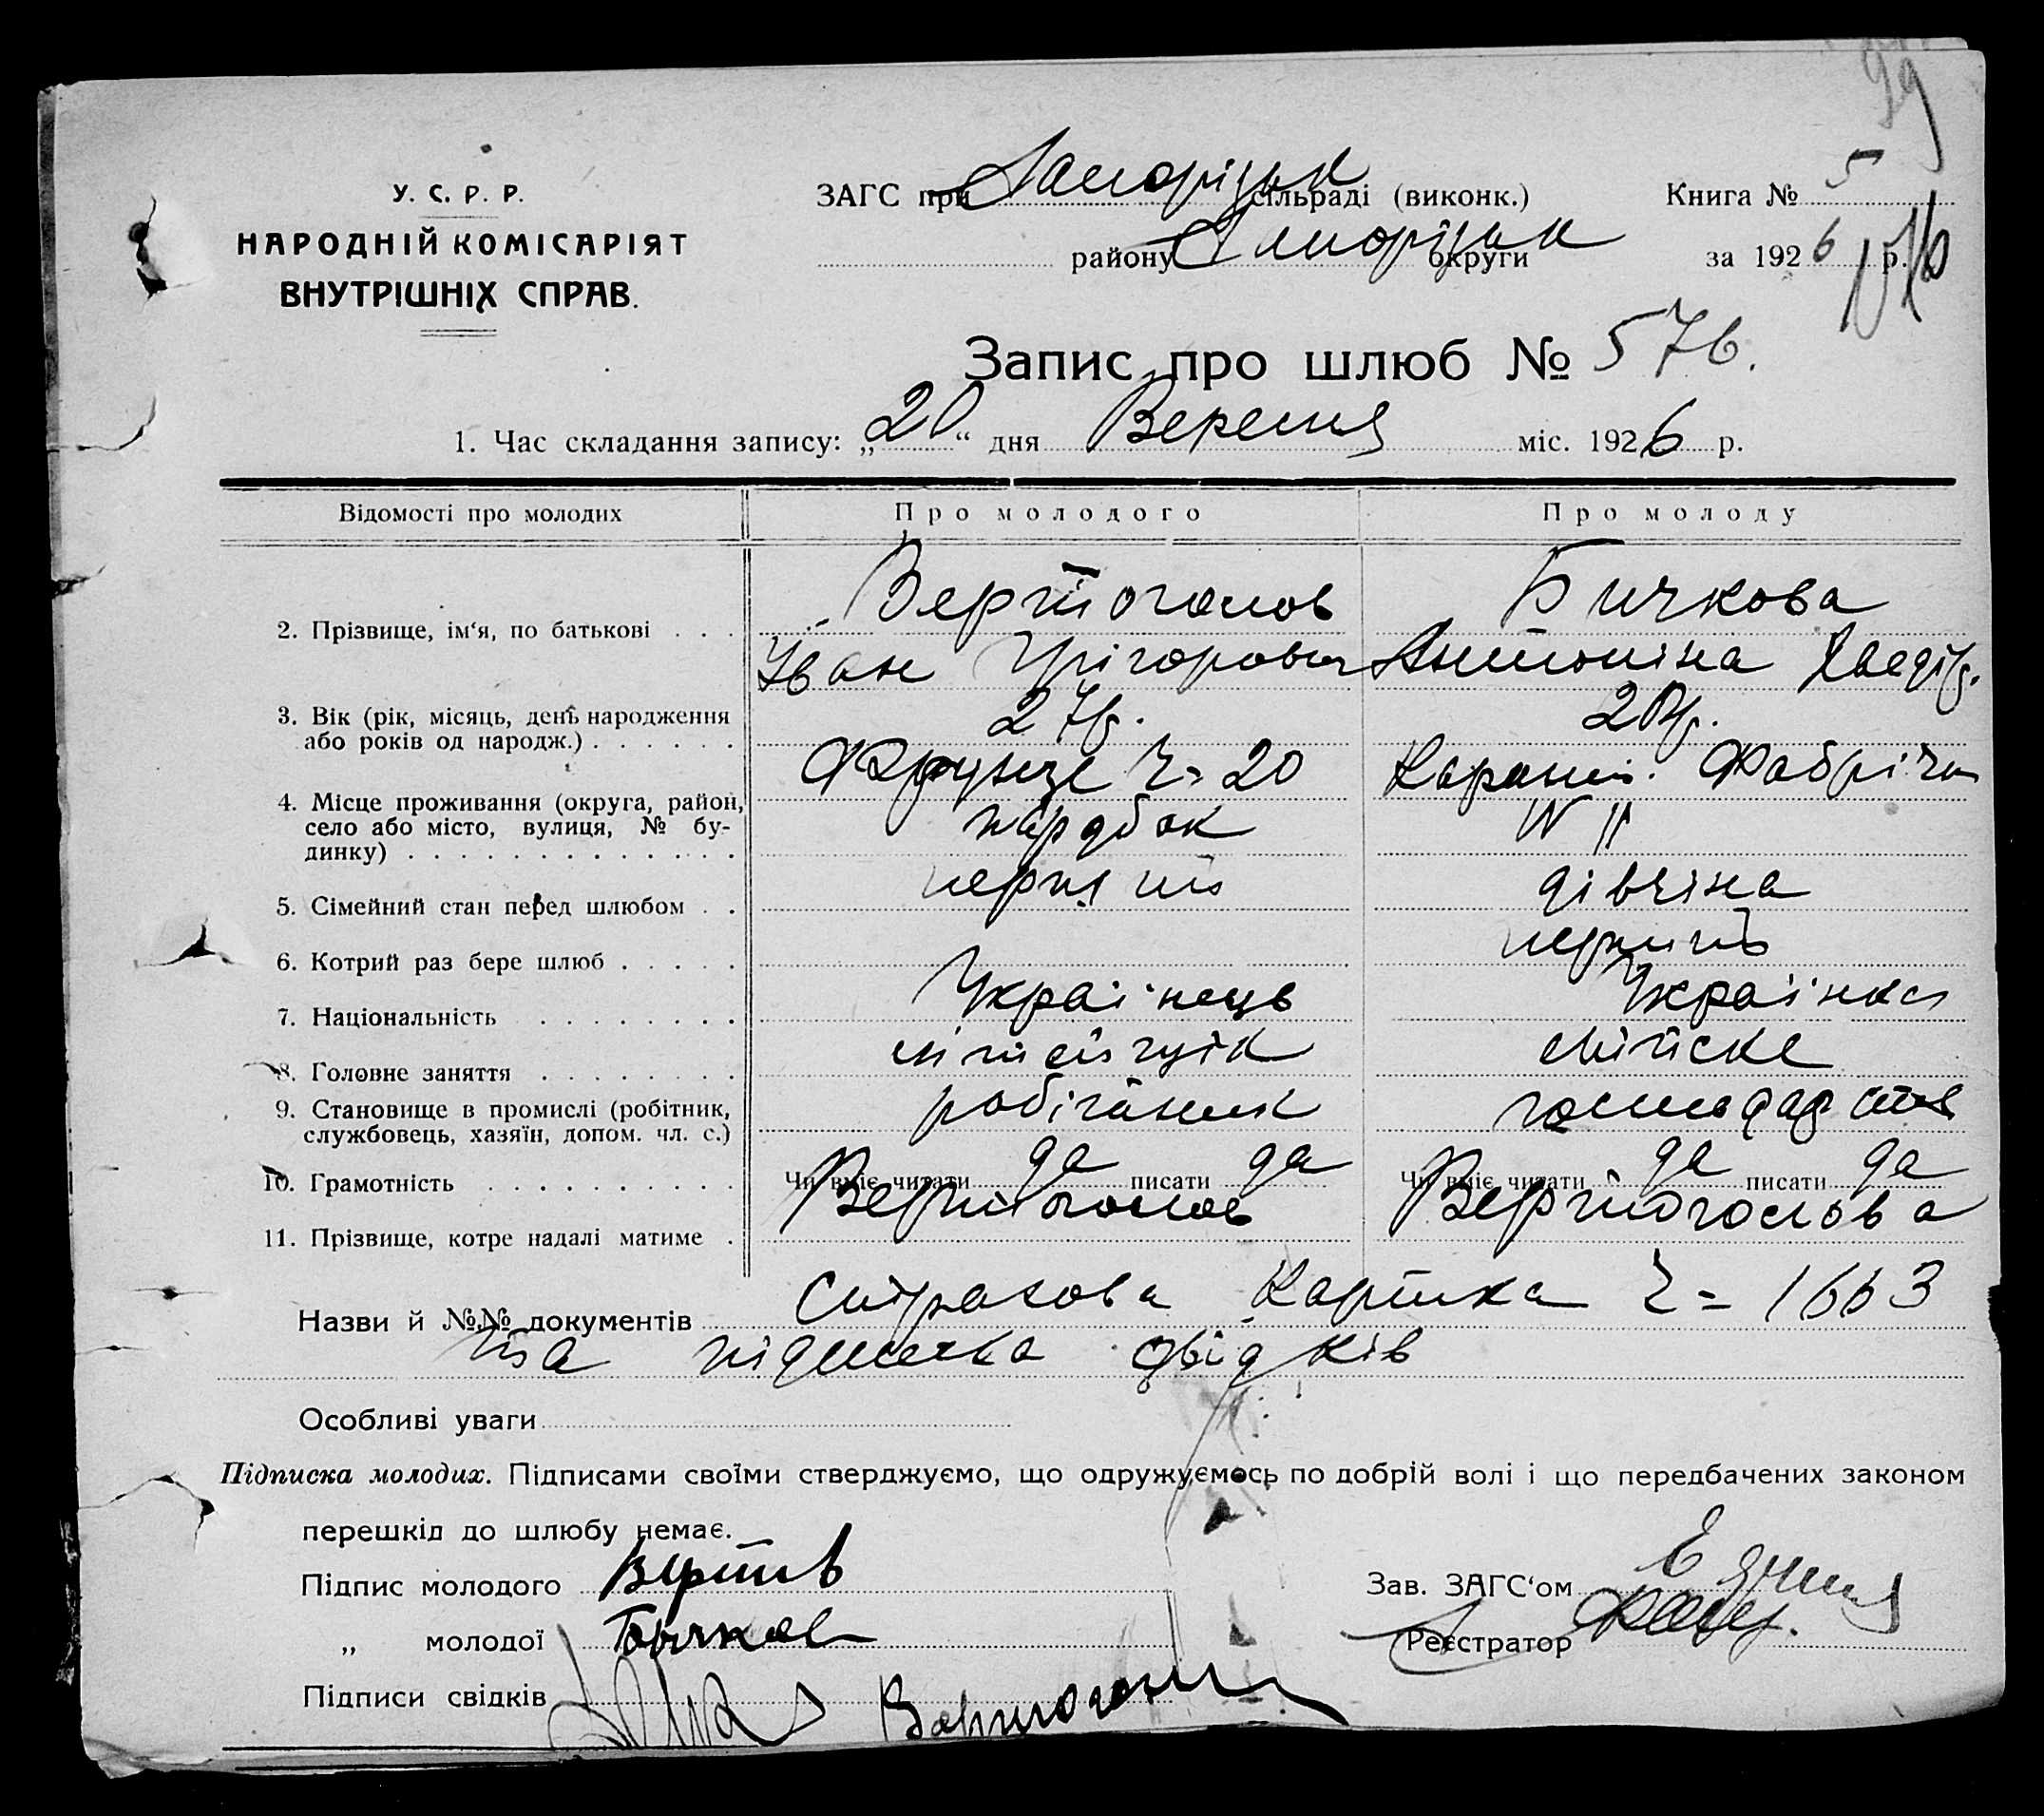 У. С. Р. Р.
НАРОДНІЙ КОМІСАРІЯТ
ВНУТРІШНІХ СПРАВ.
ЗАГС при Запорізьк сільраді (виконк.)
району Запорізьк округи
Книга № 5
за 1926 р.
Запис про шлюб № 576.
1. Час складання запису: „20“ дня Вересня міс. 1926 р.
Відомості про молодих Про молодого Про молоду
2. Прізвище, ім‘я, по батькові . . . Вертоголов Бичкова
Іван Грігорович Антоніна Хведір.
3. Вік (рік, місяць, день народження 27р.
або років од народж.) . . . . . .
4. Місце проживання (округа, район, Фрунзе Ч= 20 Карант. Фабрічн
село або місто, вулиця, № бу- парубок N 11
динку) . . . . . . . . . . . . .
5. Сімейний стан перед шлюбом . . перший дівчіна
6. Котрий раз бере шлюб . . . . . перший
7. Національність . . . . . . . . Українець Українка
8. Головне заняття . . . . . . . . хатнє
9. Становище в промислі (робітник, робітник господарство
службовець, хазяїн, допом. чл. с.)
10. Грамотність . . . . . . . . . . Чи вміє читати да писати да Чи вміє читати да писати да
11. Прізвище, котре надалі матиме . Вертоголов Вертоголова
Назви й №№ документів Страхова Картка Ч= 1663
та підписка свідків
Особливі уваги
Підписка молодих. Підписами своїми стверджуємо, що одружуємось по добрій волі і що передбачених законом
перешкід до шлюбу немає.
Підпис молодого
Зав. ЗАГС‘ом
„ молодої Бычков
Реєстратор
Підписи свідків